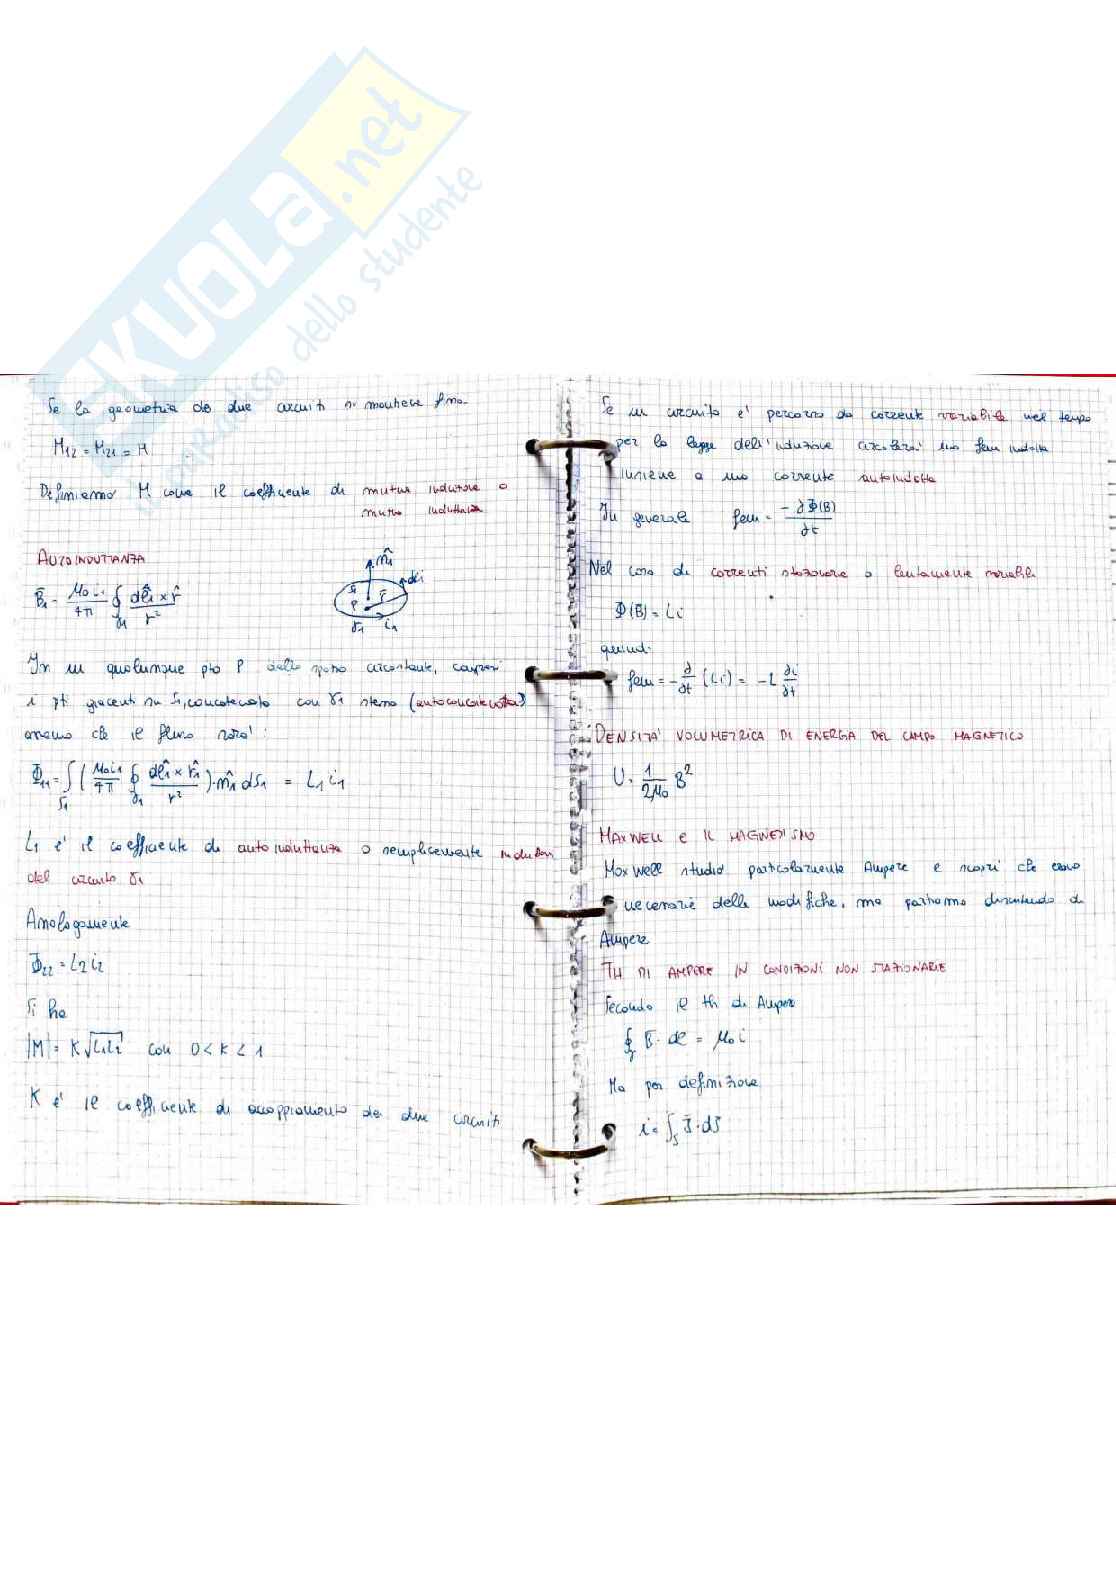 SKUOLA.net
dello studente
Se la geometria dei due circuiti si mantiene fissa.
M12 = M21 = M
Definiamo M come il coefficiente di mutua induzione o
mutua induttanza
AUTOINDUTTANZA
B̄1 = μ0 i1/4π ∮γ1 dl̂1 × r̂/r²
n̂1
S1
P
r̄
γ1
i1
In un qualunque pto P dello spazio circostante, compresi
i pti giacenti su S1, concatenato con γ1 stesso (autoconcatenato)
avremo che il flusso sarà:
Φ11 = ∫S1 (μ0 i1/4π ∮γ1 dl̂1 × r̂1/r²) · n̂1 dS1 = L1 i1
L1 è il coefficiente di autoinduttanza o semplicemente
del circuito γ1
Analogamente
Φ22 = L2 i2
Si ha
|M| = K√L1L2 con 0 < K < 1
K è il coefficiente di accoppiamento dei due circuiti
Se un circuito è percorso da corrente variabile nel tempo
per la legge dell'induzione circolerà una fem indotta
insieme a una corrente autoindotta
In generale fem = -∂Φ(B)/∂t
Nel caso di correnti stazionarie o lentamente variabili
Φ(B̄) = Li
quindi
fem = -∂/∂t (Li) = -L ∂i/∂t
DENSITA' VOLUMETRICA DI ENERGIA DEL CAMPO MAGNETICO
U = 1/2μ0 B²
MAXWELL E IL MAGNETISMO
Maxwell studiò particolarmente Ampere e scoprì che erano
necessarie delle modifiche, ma partiamo discutendo di
Ampere
TH DI AMPERE IN CONDIZIONI NON STAZIONARIE
Secondo il th di Ampere
∮γ B̄ · dl = μ0 i
Ma per definizione
i = ∫S J̄ · dS̄